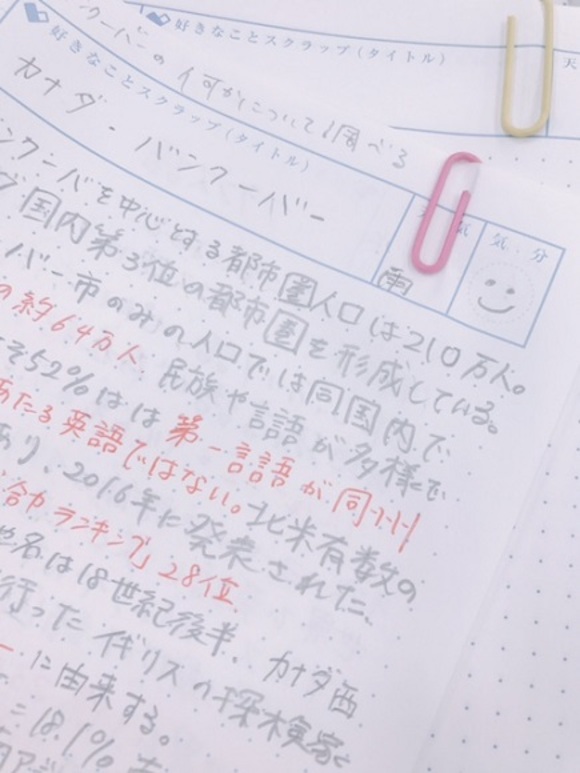 好きなことスクラップ(タイトル)
天
好きなことスクラップ(タイトル)
クーバーの 何かについて調べる
好きなことスクラップ(タイトル)
カナダ・バンクーバー
天 気
気 分
雨
ンクーバを中心とする都市圏人口は210万人。
国内第3位の都市圏を形成している。
ンバー市のみの人口では同国内で
の約64万人 民族や言語が多様で
52%はは第一言語が同州
あたる英語ではない。北米有数の
あり、2016年に発表された、
合力ランキング」28位
地名は18世紀後半、カナダ西
行ったイギリスの探検家
ーに由来する。
18.1%